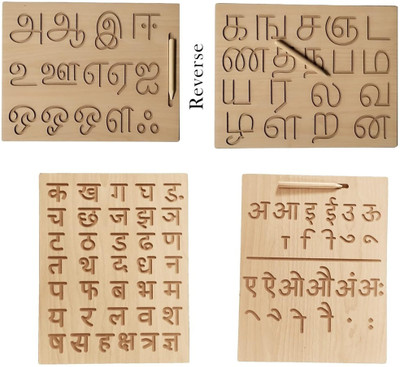 அ ஆ இ ஈ
உ ஊ எ ஏ ஐ
ஒ ஓ ஔ ஃ
Reverse
க ங ச ஞ ட
ண த ந ப ம
ய ர ல வ
ழ ள ற ன
क ख ग घ ङ
च छ ज झ ञ
ट ठ ड ढ ण
त थ द ध न
प फ ब भ म
य र ल व श
ष स ह क्ष त्र ज्ञ
अ आ इ ई उ ऊ
ा ि ी ु ू
ए ऐ ओ औ अं अः
े ै ो ौ ं ः